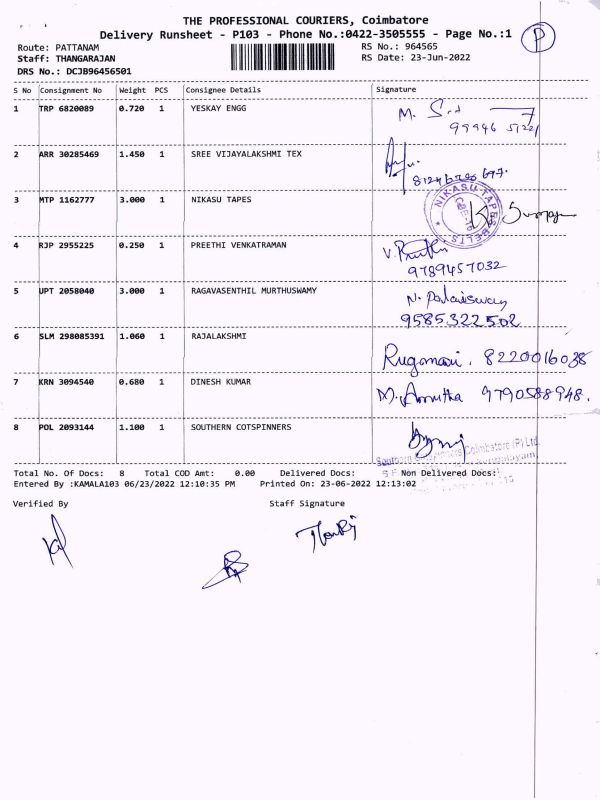 THE PROFESSIONAL COURIERS, Coimbatore
Delivery Runsheet - P103 - Phone No.:0422-3505555 - Page No.:1
P
Route: PATTANAM
RS No.: 964565
Staff: THANGARAJAN
RS Date: 23-Jun-2022
DRS No.: DCJB96456501
S No Consignment No Weight PCS Consignee Details Signature
1 TRP 6820089 0.720 1 YESKAY ENGG
2 ARR 30285469 1.450 1 SREE VIJAYALAKSHMI TEX
3 MTP 1162777 3.000 1 NIKASU TAPES
NIKASU TAPES BELTS
4 RJP 2955225 0.250 1 PREETHI VENKATRAMAN
9789457032
5 UPT 2058040 3.000 1 RAGAVASENTHIL MURTHUSWAMY
9585322502
6 SLM 298085391 1.060 1 RAJALAKSHMI
Rugomani. 8220016038
7 KRN 3094540 0.680 1 DINESH KUMAR
M. Amutha 9790588948.
8 POL 2093144 1.100 1 SOUTHERN COTSPINNERS
Coimbatore (P) Ltd.
Total No. Of Docs: 8 Total COD Amt: 0.00 Delivered Docs: Non Delivered Docs:
Entered By :KAMALA103 06/23/2022 12:10:35 PM Printed On: 23-06-2022 12:13:02
Verified By Staff Signature